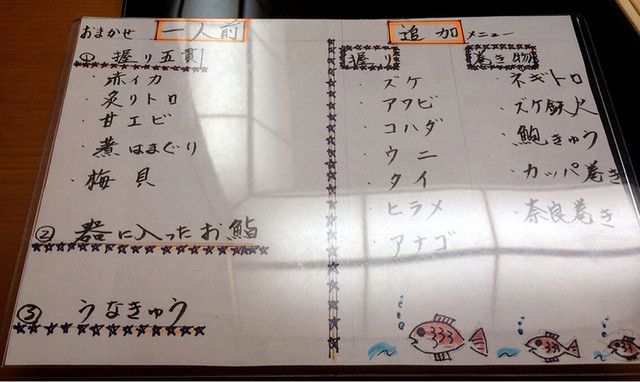 おまかせ 一人前
① 握り五貫
・赤イカ
・炙りトロ
・甘エビ
・煮はまぐり
・梅貝
② 器に入ったお鮨
③ うなきゅう
追加メニュー
握り
・ズケ
・アワビ
・コハダ
・ウニ
・タイ
・ヒラメ
・アナゴ
巻き物
・ネギトロ
・ズケ鉄火
・鮑きゅう
・カッパ巻き
・奈良巻き